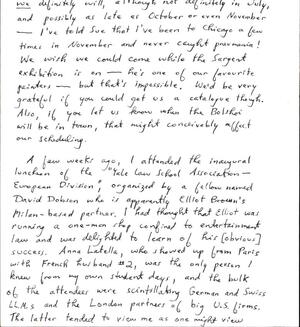 we definitely will, although not definitely in July,
and possibly as late as October or even November
— I've told Sue that I've been to Chicago a few
times in November and never caught pneumonia!
We wish we could come while the Sargent
exhibition is on — he's one of our favourite
painters — but that's impossible. We'd be very
grateful if you could get us a catalogue though.
Also, if you let us know when the Bolshoi
will be in town, that might conceivably affect
our scheduling.
A few weeks ago, I attended the inaugural
luncheon of the "Yale Law School Association —
European Division", organized by a fellow named
David Dobson who is apparently Elliot Brown's
Milan-based partner. I had thought that Elliot was
running a one-man shop confined to entertainment
law and was delighted to learn of his [obvious]
success. Anna Latella, who showed up from Paris
with French husband #2, was the only person I
knew from my own student days, and the bulk
of the attendees were scintillating German and Swiss
LL.M.s and the London partners of big U.S. firms.
The latter tended to view me as one might view